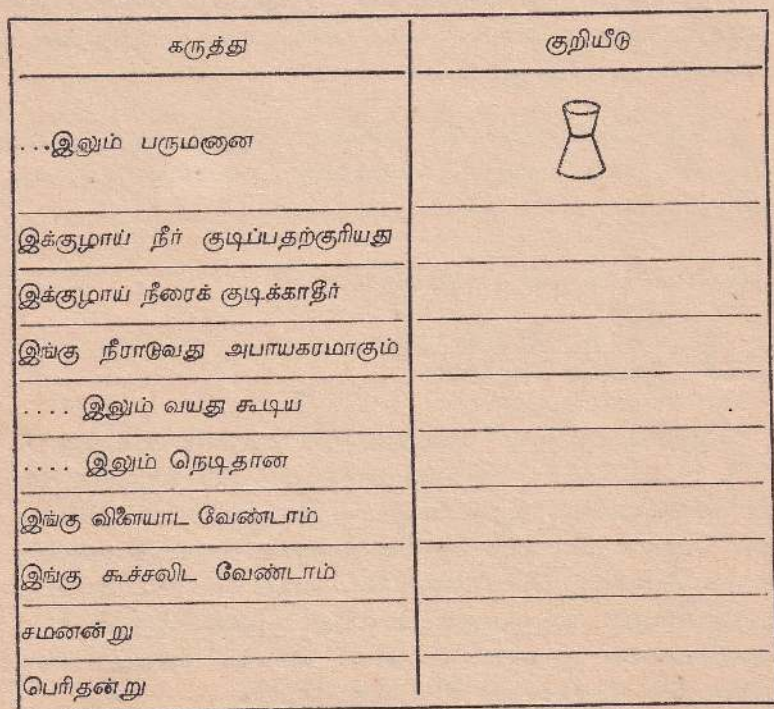 கருத்து
குறியீடு
...இலும் பருமனான
இக்குழாய் நீர் குடிப்பதற்குரியது
இக்குழாய் நீரைக் குடிக்காதீர்
இங்கு நீராடுவது அபாயகரமாகும்
.... இலும் வயது கூடிய
.... இலும் நெடிதான
இங்கு விளையாட வேண்டாம்
இங்கு கூச்சலிட வேண்டாம்
சமனன்று
பெரிதன்று